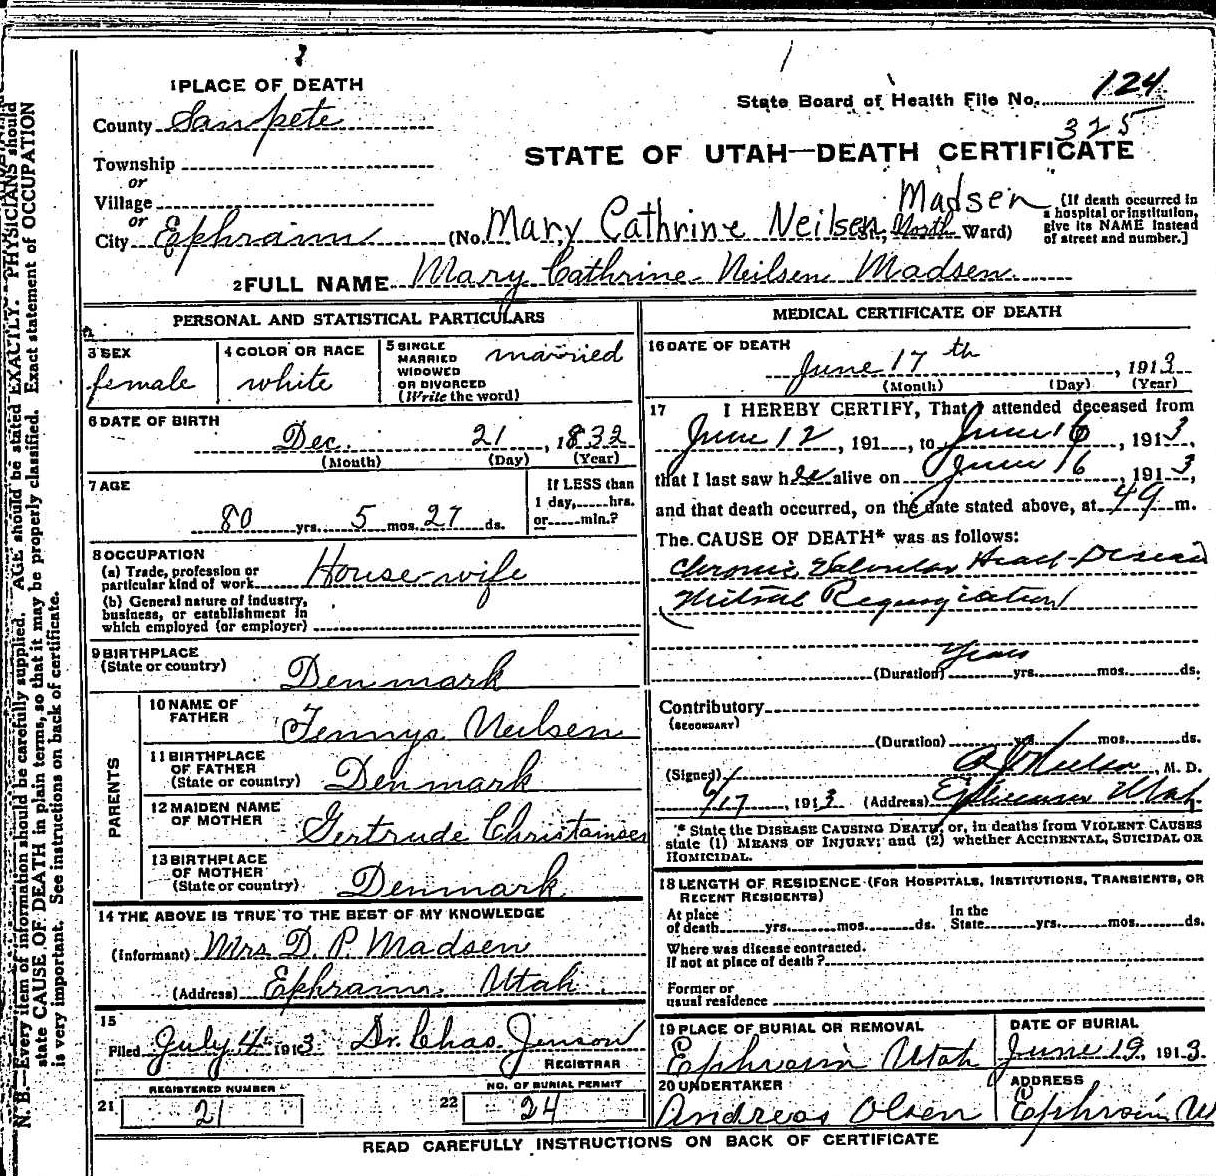 1 PLACE OF DEATH
County Sanpete
Township
or
Village
or
City Ephraim (No. Mary Cathrine Neilsen Madsen St., North Ward)
[If death occurred in a hospital or institution, give its NAME instead of street and number.]
State Board of Health File No. 124
325
STATE OF UTAH—DEATH CERTIFICATE
2 FULL NAME Mary Cathrine Neilsen Madsen
PERSONAL AND STATISTICAL PARTICULARS
3 SEX
female
4 COLOR OR RACE
white
5 SINGLE
MARRIED
WIDOWED
OR DIVORCED
(Write the word)
married
6 DATE OF BIRTH
Dec. 21, 1832
(Month) (Day) (Year)
7 AGE
80 yrs. 5 mos. 27 ds.
If LESS than
1 day,......hrs.
or......min.?
8 OCCUPATION
(a) Trade, profession or
particular kind of work Housewife
(b) General nature of industry,
business, or establishment in
which employed (or employer)
9 BIRTHPLACE
(State or country)
Denmark
PARENTS
10 NAME OF
FATHER
Jennys Neilsen
11 BIRTHPLACE
OF FATHER
(State or country)
Denmark
12 MAIDEN NAME
OF MOTHER
Gertrude
13 BIRTHPLACE
OF MOTHER
(State or country)
Denmark
14 THE ABOVE IS TRUE TO THE BEST OF MY KNOWLEDGE
(Informant) Mrs D. P. Madsen
(Address) Ephraim Utah
15
Filed July 4" 1913. Dr. Chas. Jenson
REGISTRAR
21 REGISTERED NUMBER
21
22 NO. OF BURIAL PERMIT
24
MEDICAL CERTIFICATE OF DEATH
16 DATE OF DEATH
June 17th, 1913
(Month) (Day) (Year)
17 I HEREBY CERTIFY, That I attended deceased from
June 12, 191 , to June 16, 1913,
that I last saw her alive on June 16, 1913,
and that death occurred, on the date stated above, at 49 m.
The CAUSE OF DEATH* was as follows:
Chronic Valvular Heart Disease
(Mitral Regurgitation)
Years
(Duration) yrs. mos. ds.
Contributory
(SECONDARY)
(Duration) yrs. mos. ds.
(Signed) M. D.
6/17, 1913 (Address) Ephraim Utah
* State the DISEASE CAUSING DEATH, or, in deaths from VIOLENT CAUSES
state (1) MEANS OF INJURY; and (2) whether ACCIDENTAL, SUICIDAL OR
HOMICIDAL.
18 LENGTH OF RESIDENCE (FOR HOSPITALS, INSTITUTIONS, TRANSIENTS, OR
RECENT RESIDENTS)
At place
of death......yrs......mos......ds.
In the
State......yrs......mos......ds.
Where was disease contracted.
If not at place of death?
Former or
usual residence
19 PLACE OF BURIAL OR REMOVAL
Ephraim Utah
DATE OF BURIAL
June 19, 1913.
20 UNDERTAKER
Andreas Olsen
ADDRESS
Ephraim U
READ CAREFULLY INSTRUCTIONS ON BACK OF CERTIFICATE
N. B.—Every item of information should be carefully supplied. AGE should be stated EXACTLY. PHYSICIANS should
state CAUSE OF DEATH in plain terms, so that it may be properly classified. Exact statement of OCCUPATION
is very important. See instructions on back of certificate.